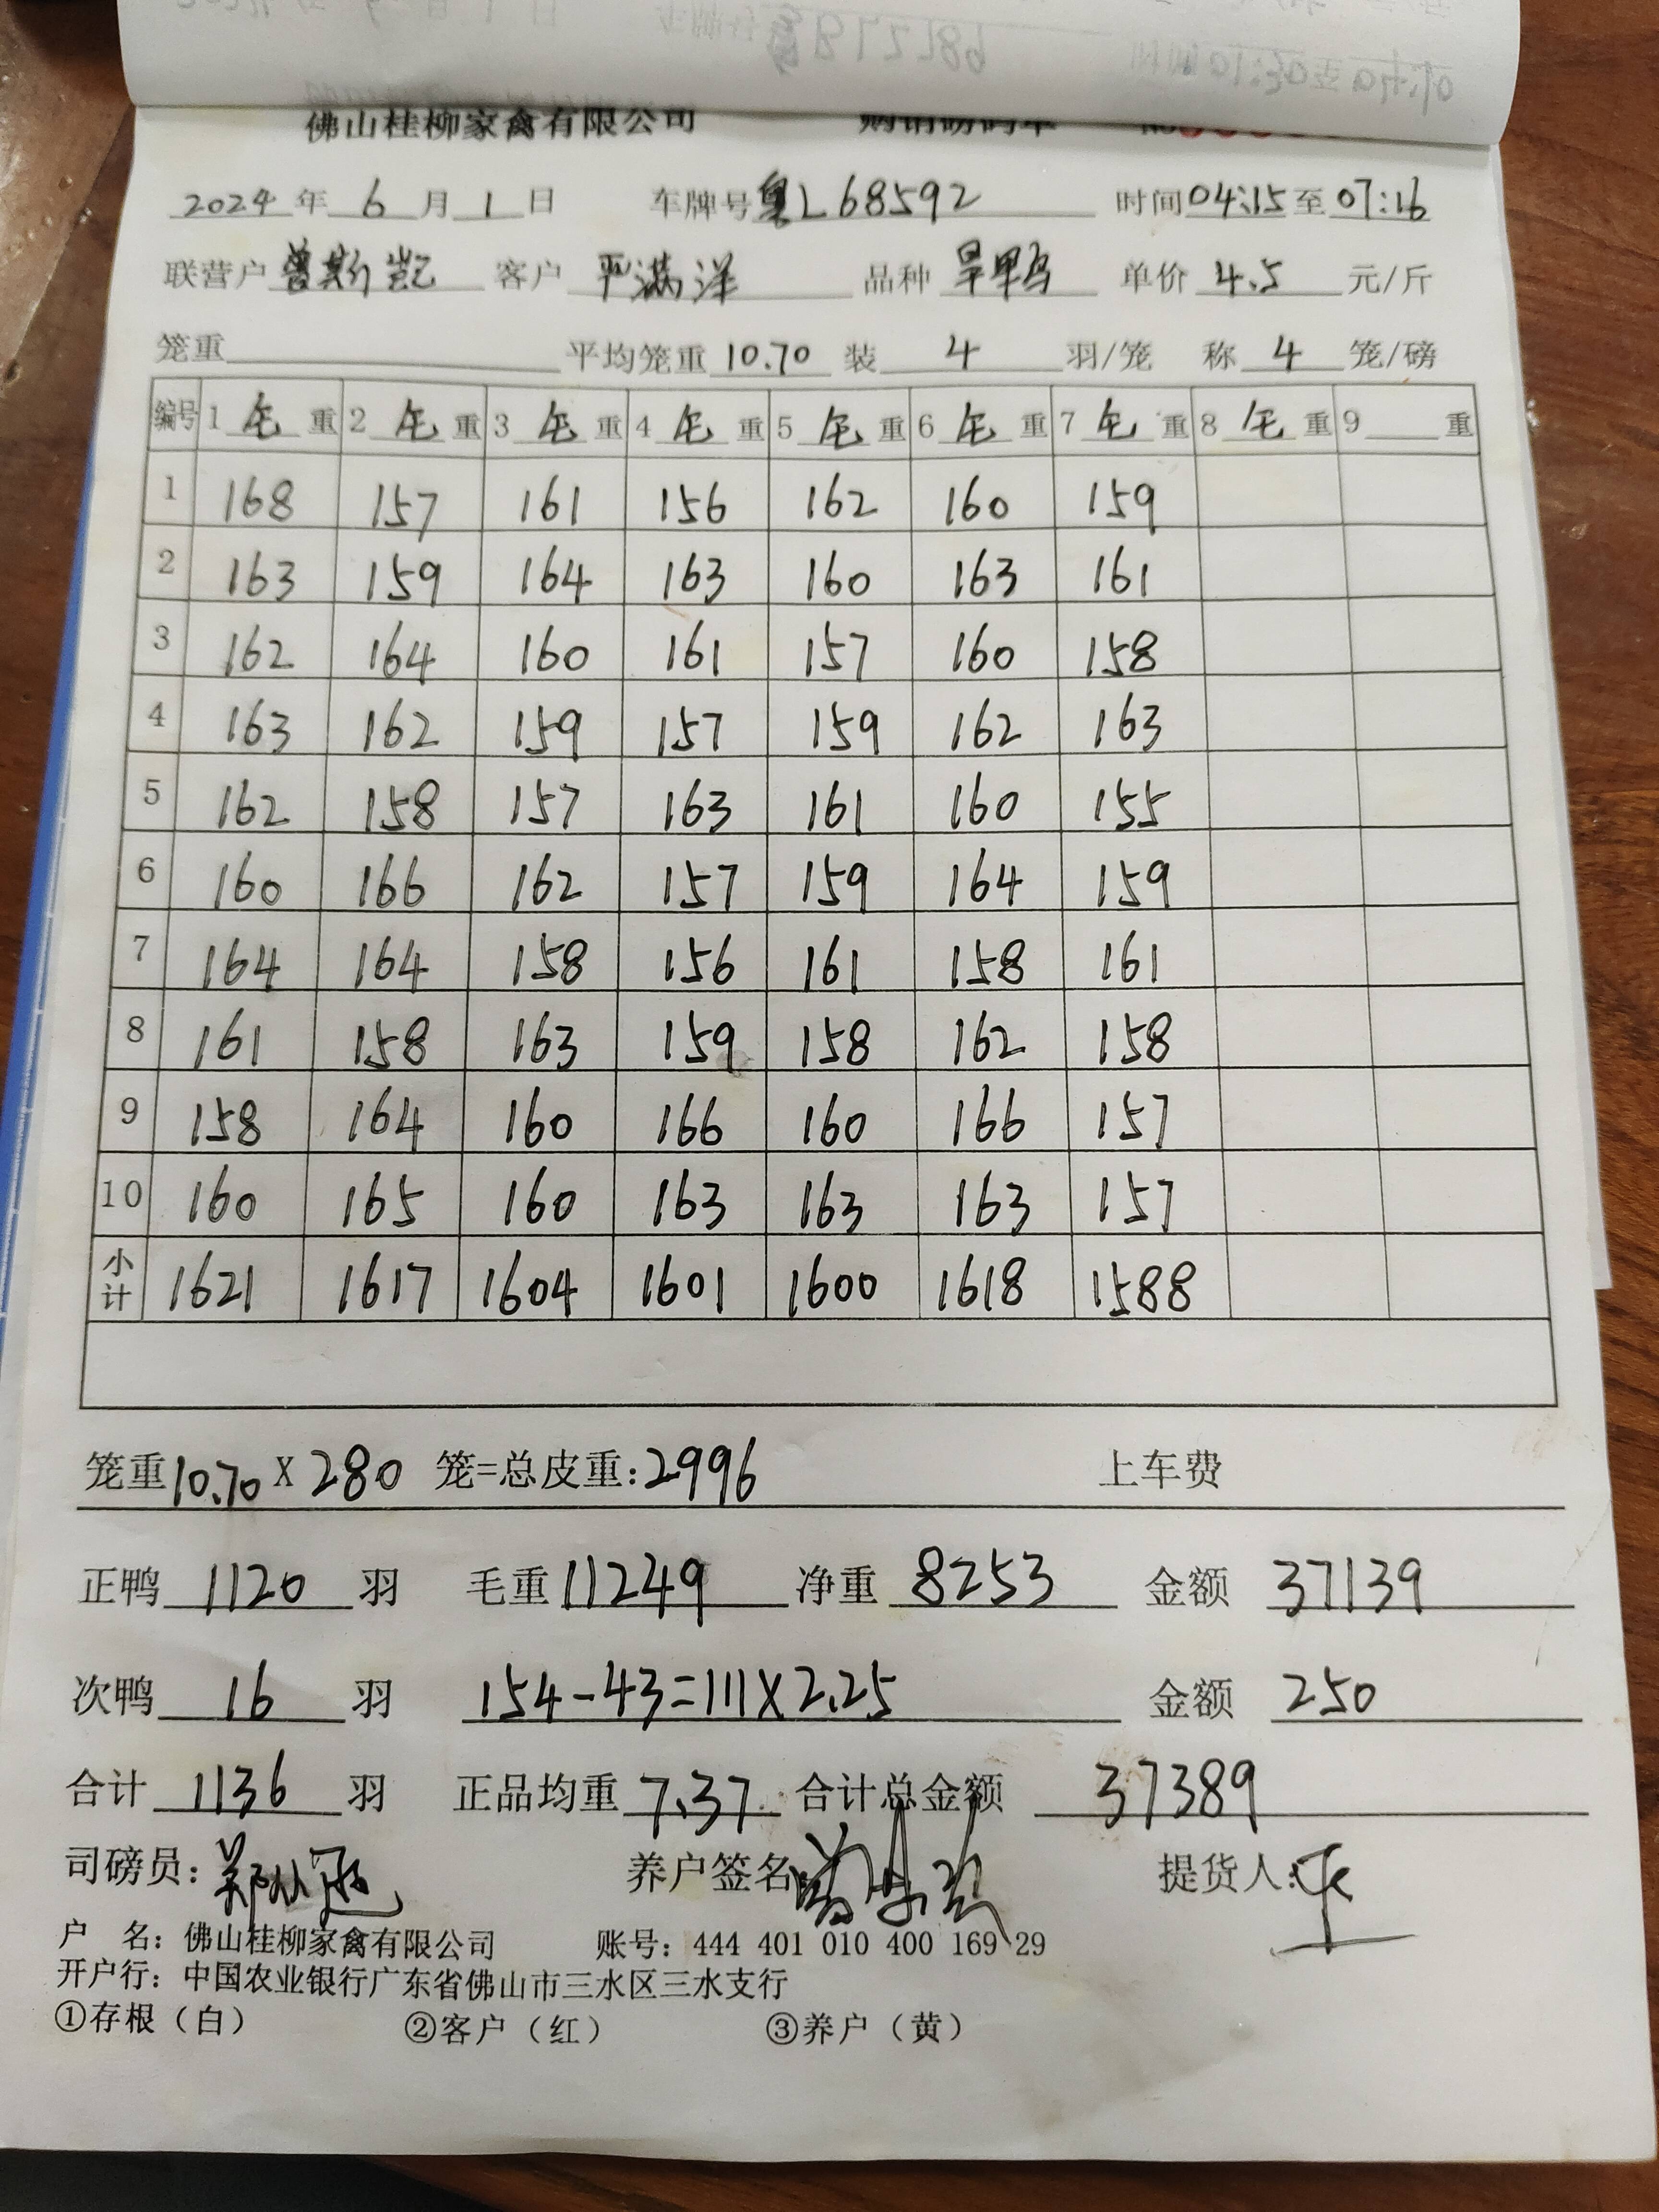 佛山桂柳家禽有限公司 购销磅码单
2024年6月1日 车牌号粤L68592 时间04:15至07:16
联营户曾斯凯 客户严满洋 品种旱鸭 单价4.5元/斤
笼重 平均笼重10.70 装4羽/笼 称4笼/磅
编号 1毛重 2毛重 3毛重 4毛重 5毛重 6毛重 7毛重 8毛重 9重
1 168 157 161 156 162 160 159
2 163 159 164 163 160 163 161
3 162 164 160 161 157 160 158
4 163 162 159 157 159 162 163
5 162 158 157 163 161 160 155
6 160 166 162 157 159 164 159
7 164 164 158 156 161 158 161
8 161 158 163 159 158 162 158
9 158 164 160 166 160 166 157
10 160 165 160 163 163 163 157
小计 1621 1617 1604 1601 1600 1618 1588
笼重10.70X280笼=总皮重:2996 上车费
正鸭1120羽 毛重11249 净重8253 金额37139
次鸭16羽 154-43=111X2.25 金额250
合计1136羽 正品均重7.37 合计总金额37389
司磅员: 养户签名 提货人:
户 名: 佛山桂柳家禽有限公司 账号: 444 401 010 400 169 29
开户行: 中国农业银行广东省佛山市三水区三水支行
①存根（白） ②客户（红） ③养户（黄）